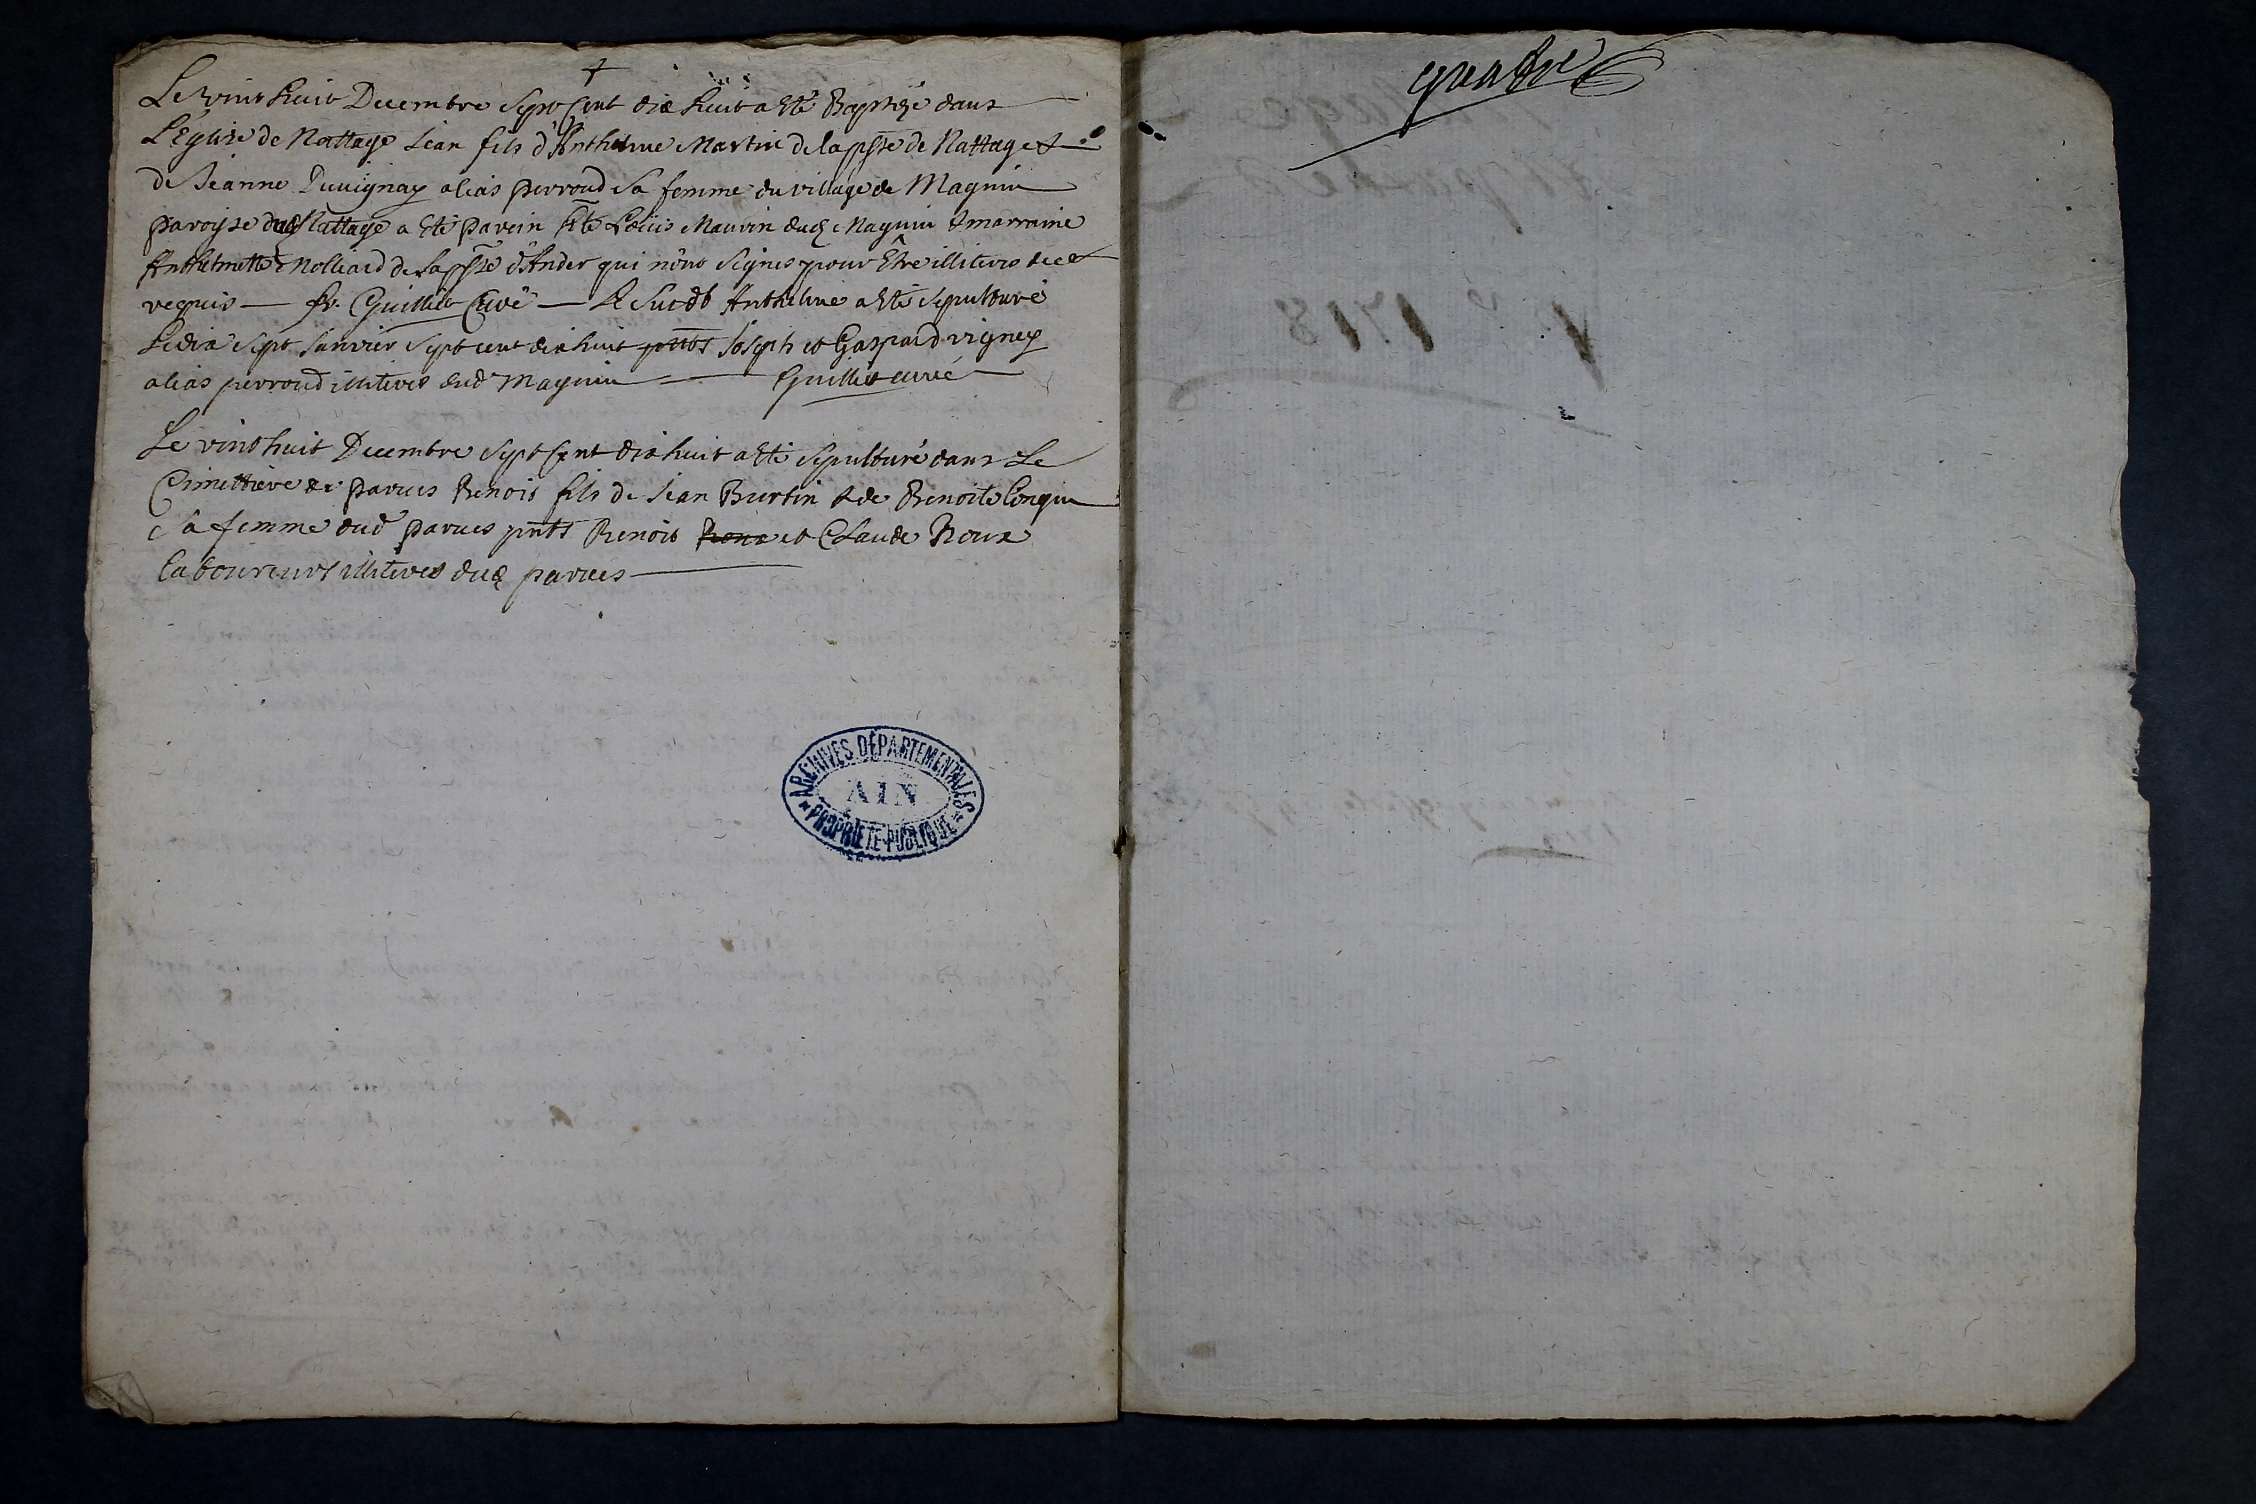 Le vint huit Decembre sept Cent dix huit a Eté Baptizé dans
L'Eglize de Nattage Jean fils d'Anthelme Martin de lappsse de Nattage &
de Jeanne Duvignay alias perroud sa femme du village de Magnin
paroisse dud Nattage a Eté parein hte Loüis Maurin dud Magnin & marraine
Anthelmette Molliard de lappsse d'Ander qui nont signes pour Etre illiteres de ce
requis — fr. Guillet Curé — Le Susdt Anthelme a Eté sepulturé
Le dix sept Janvier sept cent dix huit pntts Joseph et Gaspard vigney
alias perroud illiteres dud Magnin — Guillet curé
Le vint huit Decembre sept Cent dix huit a Eté sepulturé dans Le
Cimettiere de parues Benoit fils de Jean Burtin & de Benoite
sa femme dud parues pntts Benoit et Claude Roux
laboureurs illiteres dud parues
ARCHIVES DÉPARTEMENTALES
AIN
PROPRIÉTÉ PUBLIQUE
quatre
1718